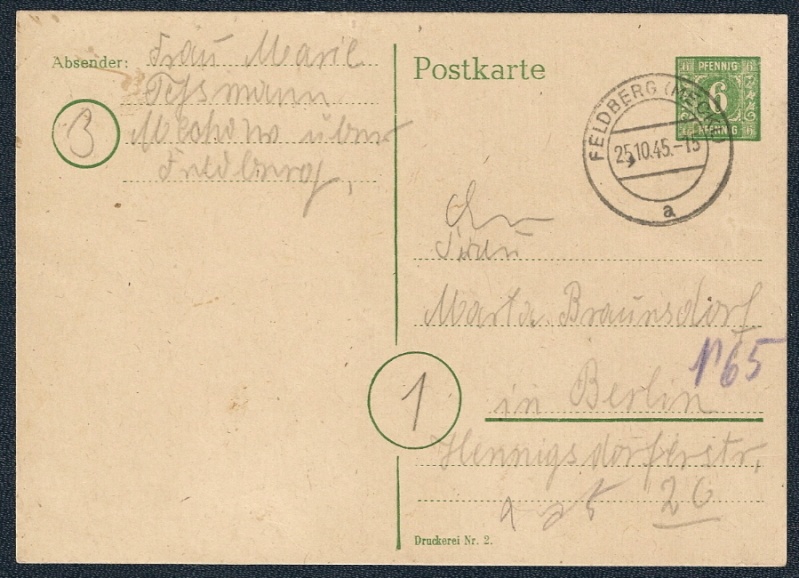 Absender: Frau Marie
Tessmann
Mechow über
Feldberg,
3
Postkarte
6 PFENNIG 6
6
6 PFENNIG 6
FELDBERG (MECKL)
25.10.45.-15
a
An
Frau
Marta Braunsdorf
in Berlin
N65
1
Hennigsdorferstr,
26
Druckerei Nr. 2.